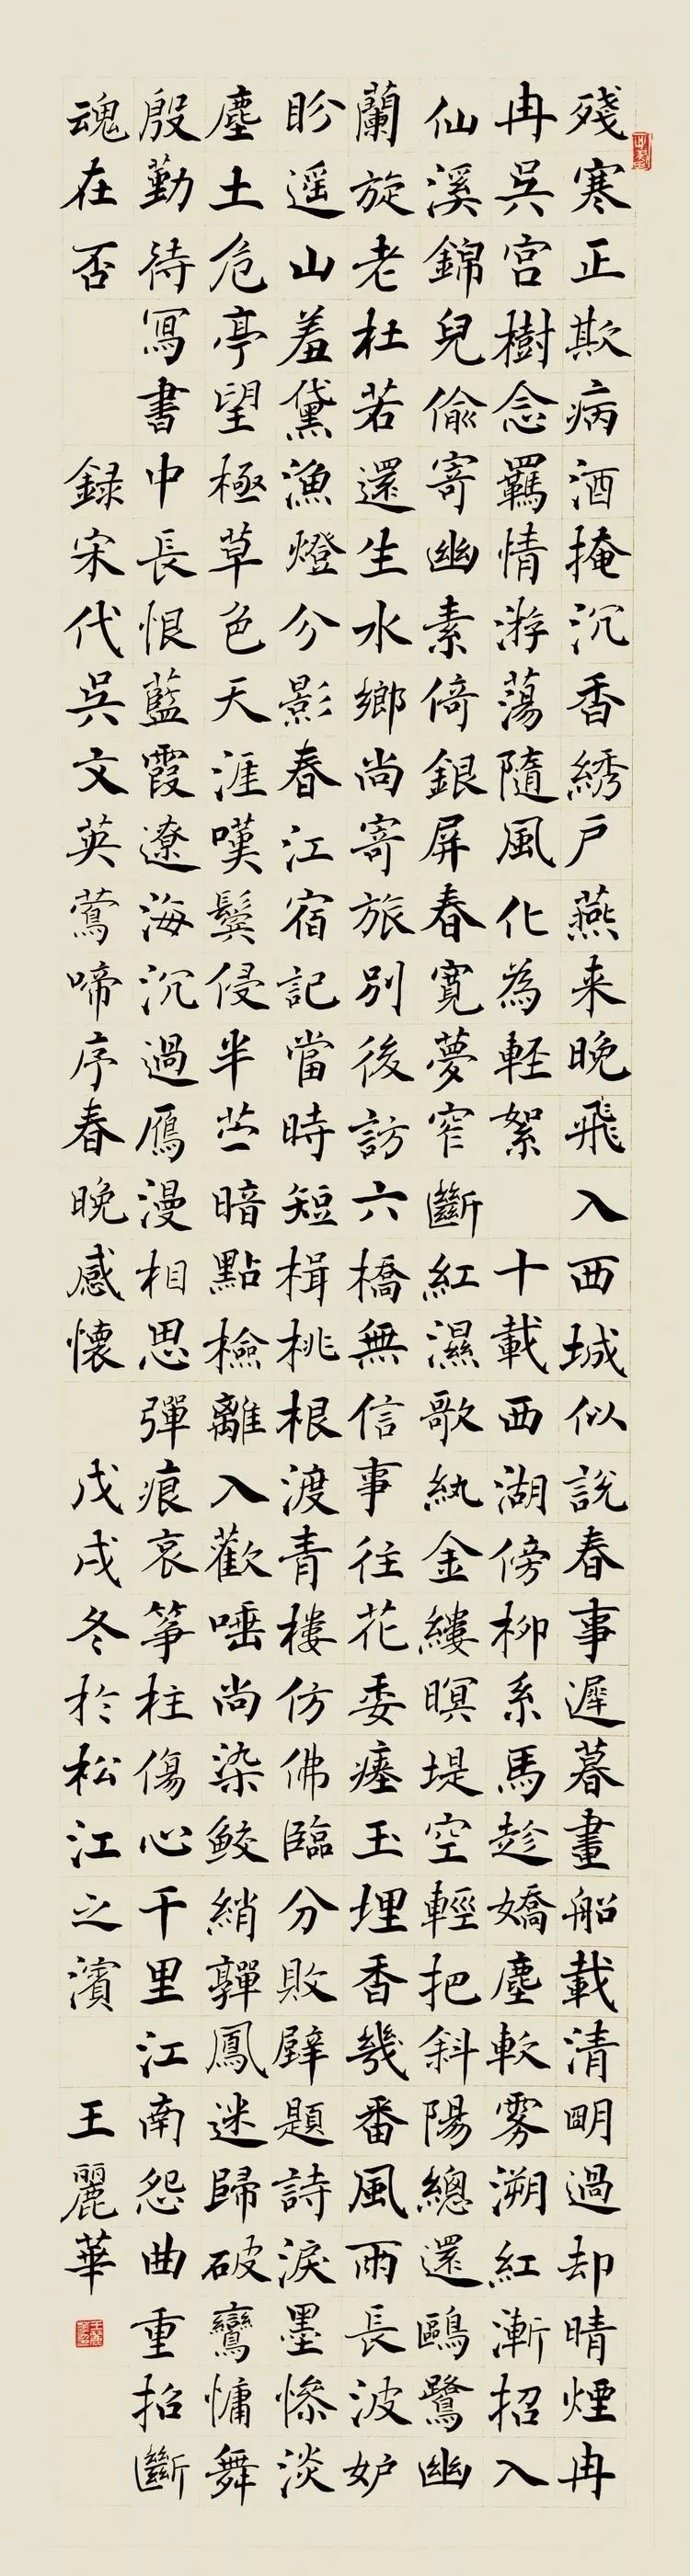 殘寒正欺病酒掩沉香綉戶燕来晚飛入西城似說春事遲暮畫船載清明過却晴煙冉
冉吳宮樹念羈情游蕩隨風化為輕絮 十載西湖傍柳系馬趁嬌塵軟雾溯紅漸招入
仙溪錦兒偷寄幽素倚銀屏春寬夢窄斷紅濕歌紈金縷暝堤空輕把斜陽總還鷗鷺幽
蘭旋老杜若還生水鄉尚寄旅別後訪六橋無信事往花委瘞玉埋香幾番風雨長波妒
盼遥山羞黛漁燈分影春江宿記當時短楫桃根渡青樓仿佛臨分敗壁題詩淚墨慘淡
塵土危亭望極草色天涯嘆鬢侵半苎暗點檢離入歡唾尚染鲛綃嚲鳳迷歸破鸞慵舞
殷勤待寫書中長恨藍霞遼海沉過雁漫相思彈痕哀筝柱傷心千里江南怨曲重招斷
魂在否 録宋代吳文英鶯啼序春晚感懷 戊戌冬於松江之濱 王麗華